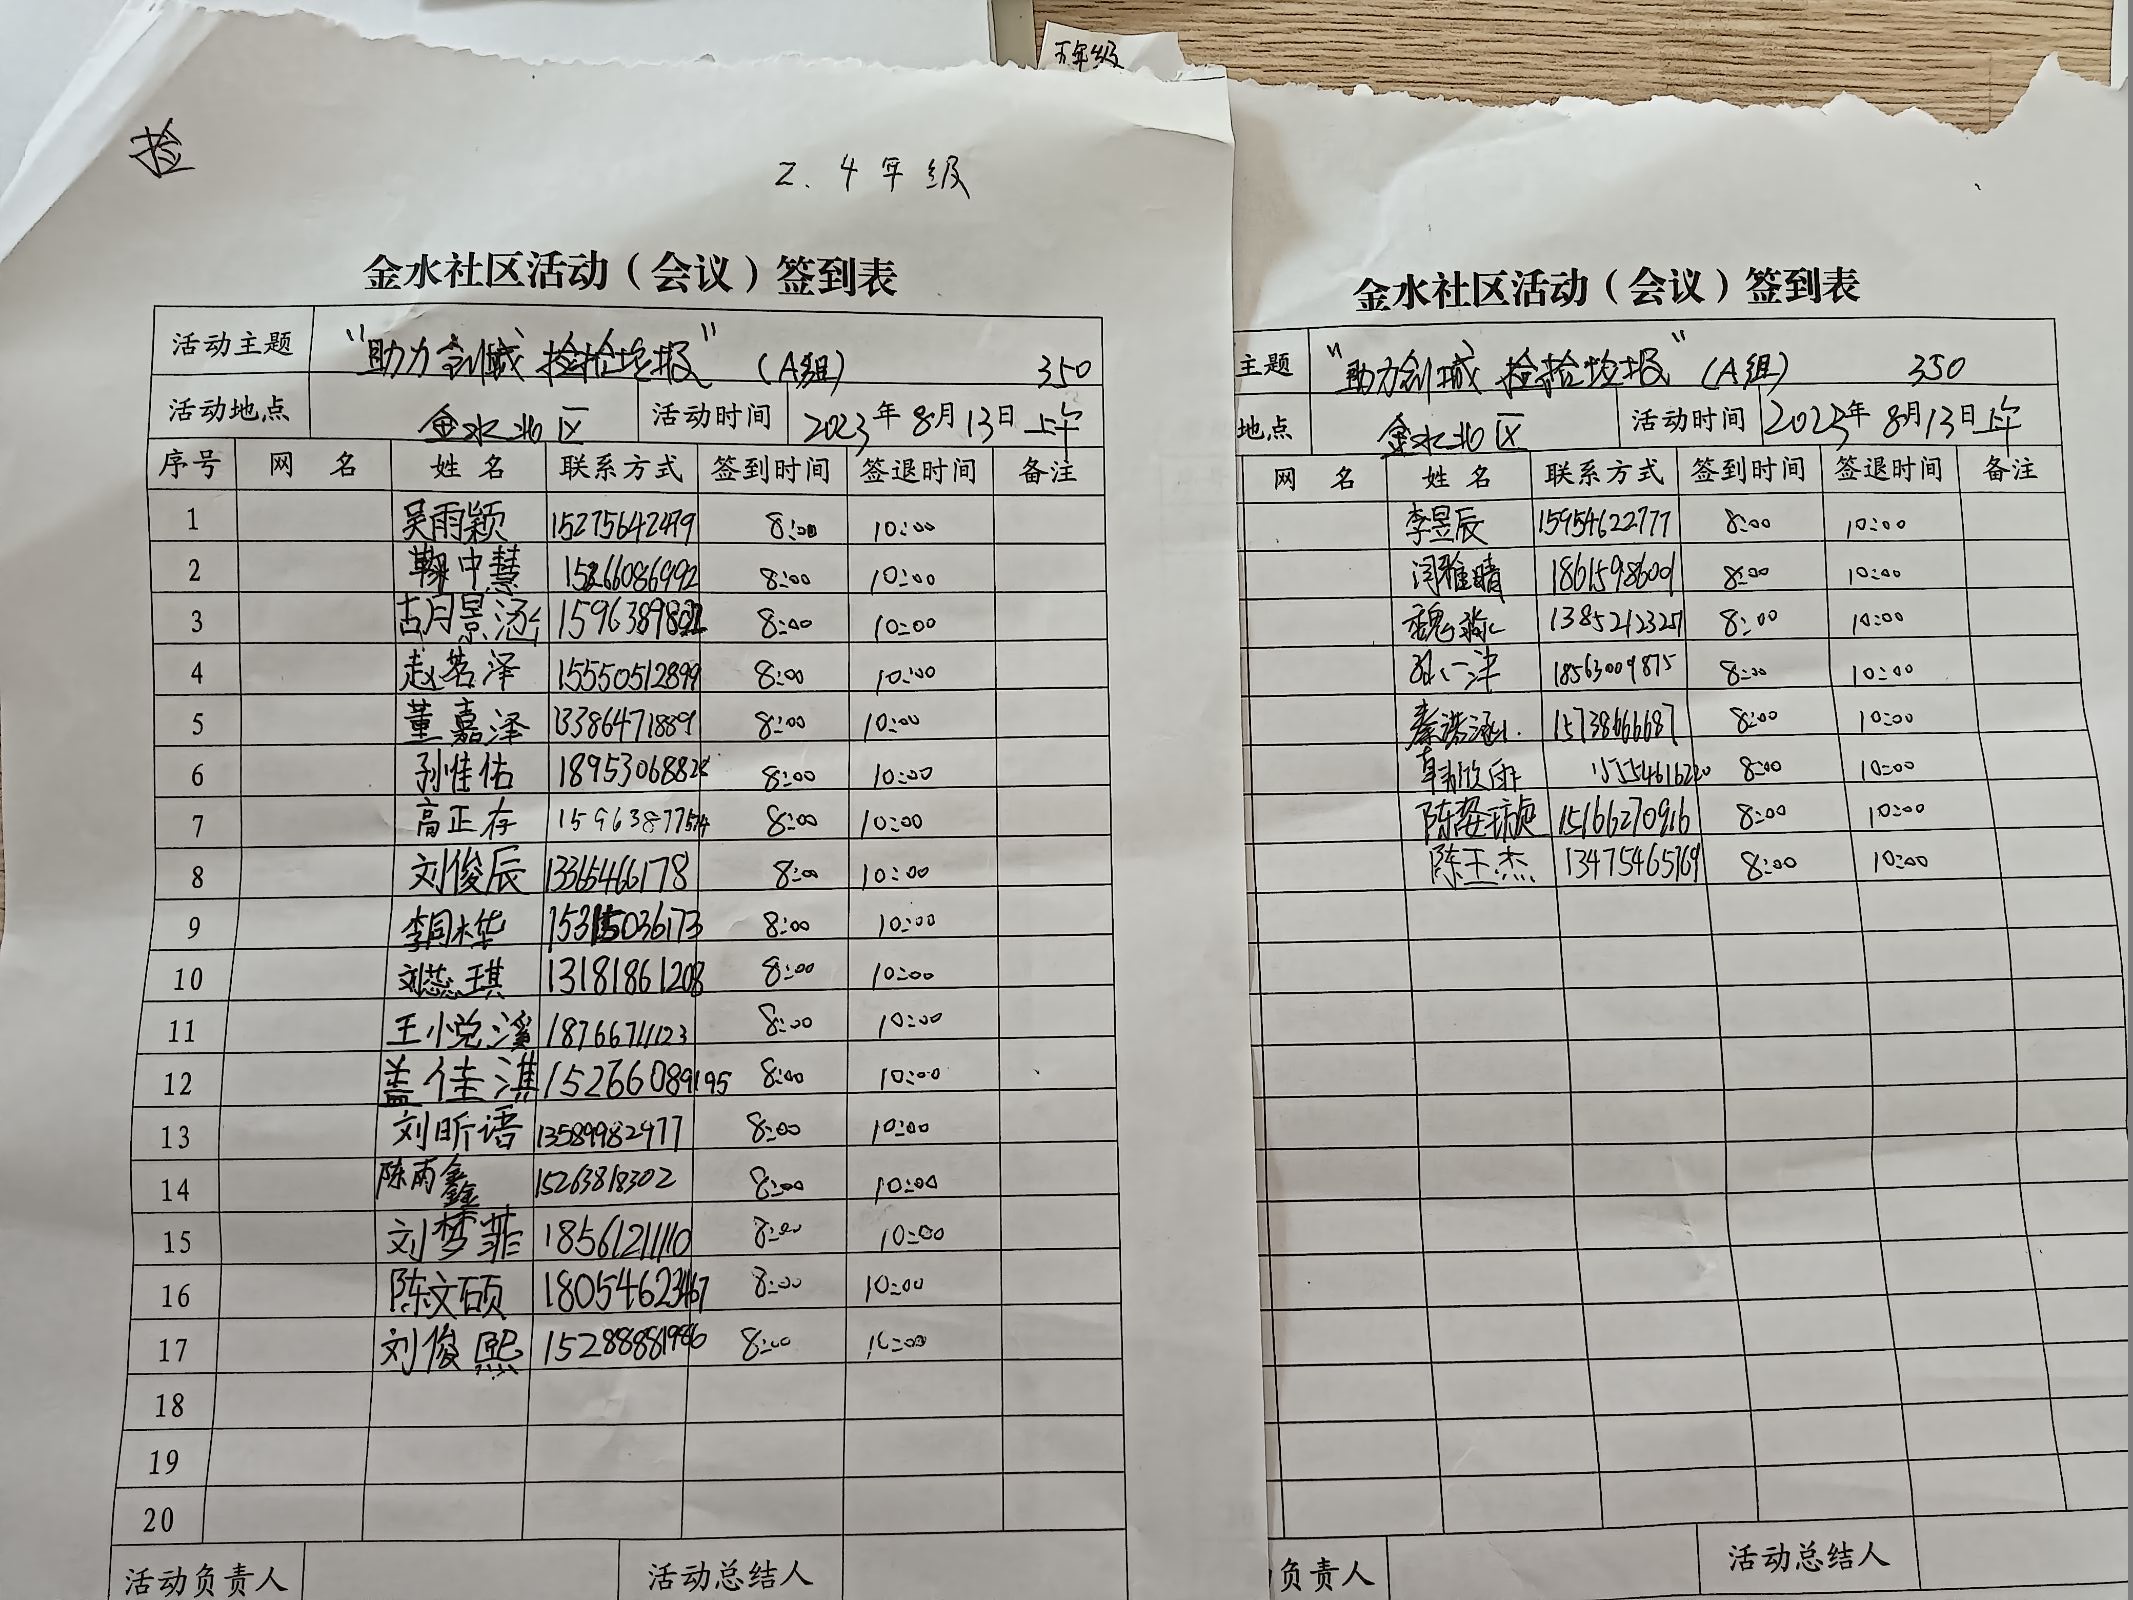 五年级
捡
2.4年级
金水社区活动（会议）签到表
活动主题 "助力创城 捡拾垃圾"（A组） 350
活动地点 金水北区 活动时间 2023年8月13日上午
序号 网名 姓名 联系方式 签到时间 签退时间 备注
1 吴雨颖 15275642479 8:00 10:00
2 鞠中慧 15266086992 8:00 10:00
3 胡景涵 8:00 10:00
4 赵茗泽 15550512899 8:00 10:00
5 董嘉泽 13386471889 8:00 10:00
6 孙佳佑 18953068828 8:00 10:00
7 高正存 8:00 10:00
8 刘俊辰 13365466178 8:00 10:00
9 李同桦 15315036173 8:00 10:00
10 刘蕊琪 13181861208 8:00 10:00
11 王小悦溪 18766711123 8:00 10:00
12 盖佳淇 15266089195 8:00 10:00
13 刘昕语 13589982477 8:00 10:00
14 陈雨鑫 15263818302 8:00 10:00
15 刘梦菲 18561211110 8:00 10:00
16 陈文硕 18054623467 8:00 10:00
17 刘俊熙 15288881986 8:00 10:00
18
19
20
活动负责人 活动总结人
金水社区活动（会议）签到表
主题 "助力创城 捡拾垃圾"（A组） 350
地点 金水北区 活动时间 2023年8月13日上午
网名 姓名 联系方式 签到时间 签退时间 备注
李昱辰 15954622777 8:00 10:00
闫雅晴 18615986001 8:00 10:00
魏 13852123251 8:00 10:00
孙一津 18563009875 8:00 10:00
秦诺涵 15738666687 8:00 10:00
韩欣雨 8:00 10:00
陈 15166270916 8:00 10:00
陈玉杰 13475465769 8:00 10:00
负责人 活动总结人